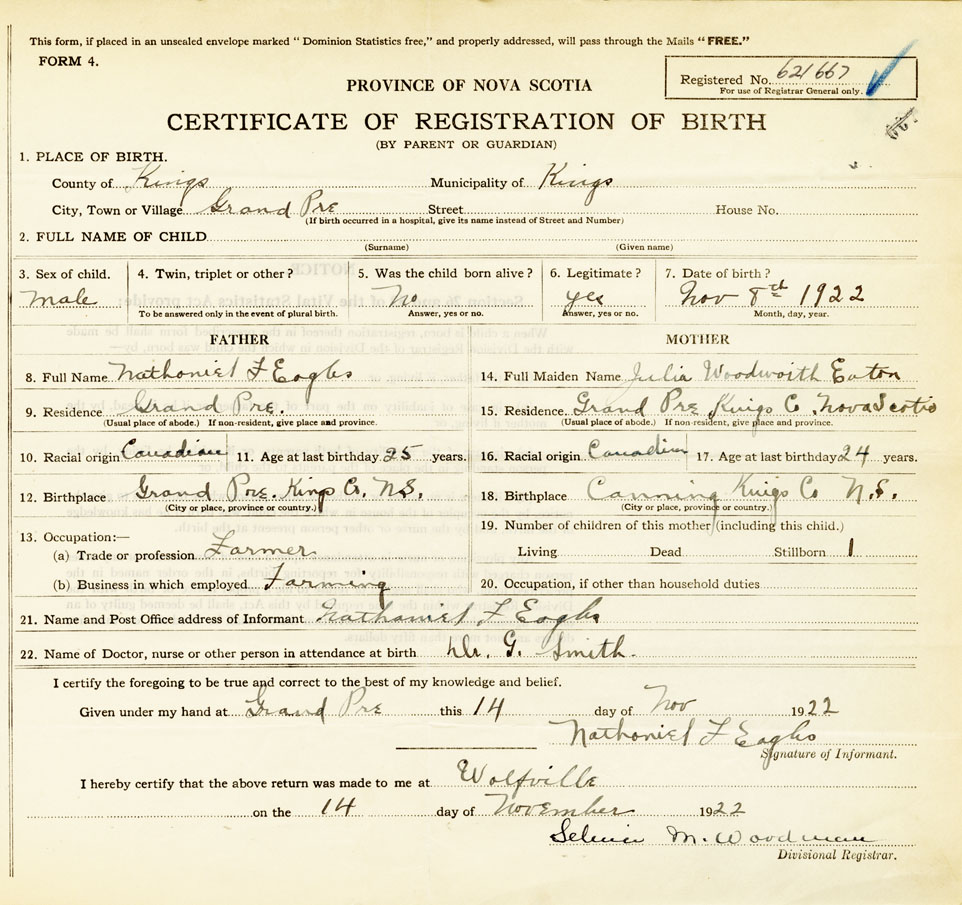 This form, if placed in an unsealed envelope marked "Dominion Statistics free," and properly addressed, will pass through the Mails "FREE."
FORM 4.
Registered No. 621667
For use of Registrar General only.
PROVINCE OF NOVA SCOTIA
CERTIFICATE OF REGISTRATION OF BIRTH
(BY PARENT OR GUARDIAN)
1. PLACE OF BIRTH.
County of Kings Municipality of Kings
City, Town or Village Grand Pre Street House No.
(If birth occurred in a hospital, give its name instead of Street and Number)
2. FULL NAME OF CHILD
(Surname) (Given name)
3. Sex of child. 4. Twin, triplet or other? 5. Was the child born alive? 6. Legitimate? 7. Date of birth?
Male No yes Nov 8th 1922
To be answered only in the event of plural birth. Answer, yes or no. Answer, yes or no. Month, day, year.
FATHER MOTHER
8. Full Name Nathaniel F Eagles 14. Full Maiden Name Julia Woodworth Eaton
9. Residence Grand Pre. 15. Residence Grand Pre Kings Co Nova Scotia
(Usual place of abode.) If non-resident, give place and province. (Usual place of abode.) If non-resident, give place and province.
10. Racial origin Canadian 11. Age at last birthday 25 years. 16. Racial origin Canadian 17. Age at last birthday 24 years.
12. Birthplace Grand Pre. Kings Co. N.S. 18. Birthplace Canning Kings Co N.S.
(City or place, province or country.) (City or place, province or country.)
13. Occupation:— 19. Number of children of this mother (including this child.)
(a) Trade or profession Farmer Living Dead Stillborn 1
(b) Business in which employed Farming 20. Occupation, if other than household duties
21. Name and Post Office address of Informant Nathaniel F Eagles
22. Name of Doctor, nurse or other person in attendance at birth Dr. G. Smith.
I certify the foregoing to be true and correct to the best of my knowledge and belief.
Given under my hand at Grand Pre this 14 day of Nov 1922
Nathaniel F Eagles
Signature of Informant.
I hereby certify that the above return was made to me at Wolfville
on the 14 day of November 1922
M. Woodman
Divisional Registrar.